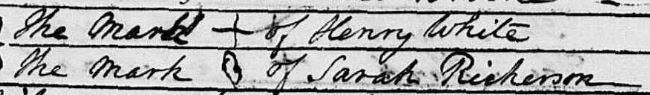 The Mark + of Henry White
The Mark O of Sarah Rickerson